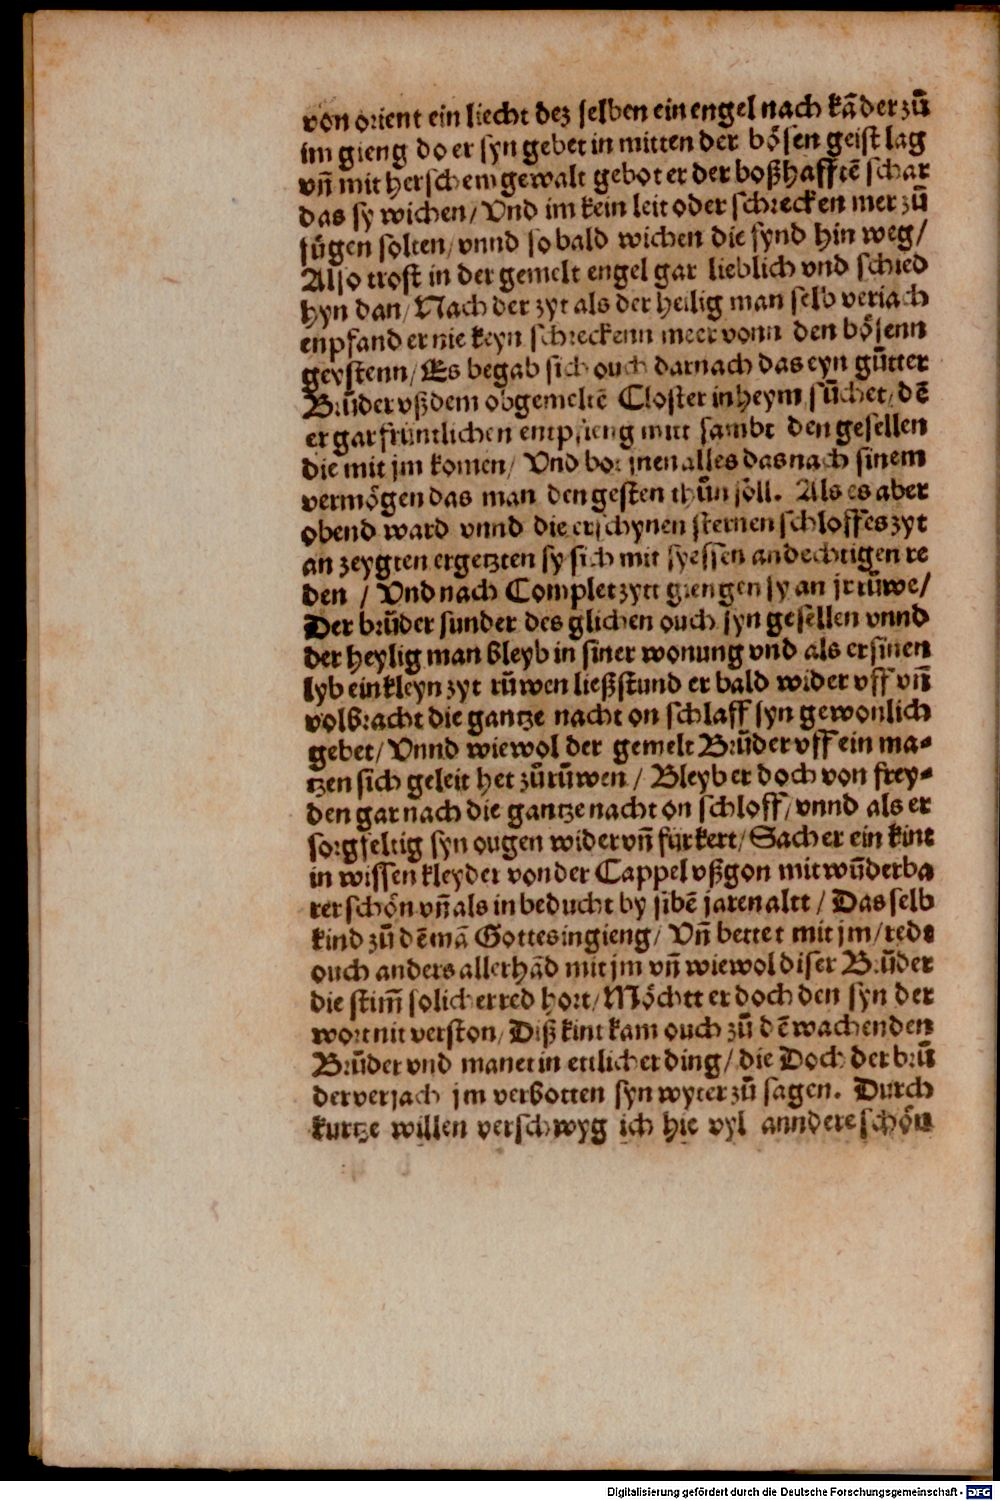 von orient ein liecht dez selben ein engel nach kā der zů
im gieng do er syn gebet in mitten der bösen geist lag
vñ mit herschem gewalt gebot er der boßhafftē schar
das sy wichen/ Vnd im kein leit oder schrecken mer zů
fůgen solten/ vnnd so bald wichen die fynd hin weg/
Also trost in der gemelt engel gar lieblich vnd schied
hyn dan/ Nach der zyt als der heilig man selb veriach
enpfand er nie keyn schreckenn meer vonn den bösenn
geystenn/ Es begab sich ouch darnach das eyn gůtter
Brůder vß dem obgemeltē Closter in heym sůchet/ dē
er gar früntlichen entpfieng mitt sambt den gesellen
die mit jm komen/ Vnd bot jnen alles das nach sinem
vermögen das man den gesten thůn söll. Als es aber
obend ward vnnd die erschynen sternen schloffes zyt
an zeygten ergetzten sy sich mit syessen andechtigen re
den / Vnd nach Complet zytt giengen sy an jr růwe/
Der brůder sunder des glichen ouch syn gesellen vnnd
der heylig man bleyb in siner wonung vnd als er sinen
lyb ein kleyn zyt růwen ließ stund er bald wider vff vñ
volbracht die gantze nacht on schlaff syn gewonlich
gebet/ Vnnd wiewol der gemelt Brůder vff ein ma-
tzen sich geleit het zů růwen / Bleyb er doch von frey-
den gar nach die gantze nacht on schloff/ vnnd als er
sorgfeltig syn ougen wider vñ für kert/ Sach er ein kint
in wissen kleyder von der Cappel vßgon mit wůnderba
rer schön vñ als in beducht by sibē jaren altt / Das selb
kind zů dē mā Gottes ingieng/ Vñ bettet mit jm/ redt
ouch anders allerhād mit jm vñ wiewol diser Brůder
die stim̄ solicher red hort/ Möchtt er doch den syn der
wort nit verston/ Diß kint kam ouch zů dē wachenden
Brůder vnd manet in ettlicher ding/ die Doch der brů
der verjach jm verbotten syn wyter zů sagen. Durch
kurtze willen verschwyg ich hie vyl anndere schön
Digitalisierung gefördert durch die Deutsche Forschungsgemeinschaft - DFG